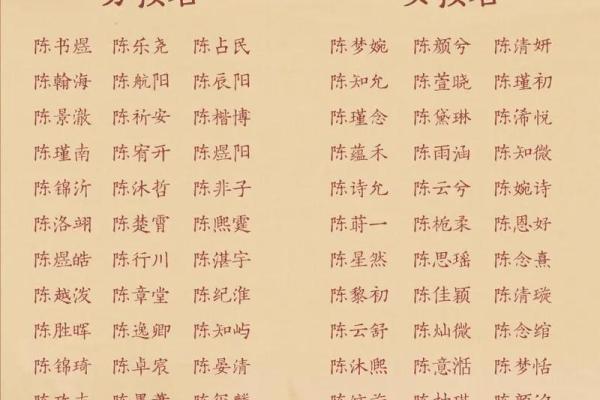 陈书煜 陈乐尧 陈占民
陈翰海 陈航阳 陈辰阳
陈景澈 陈祈安 陈楷博
陈瑾南 陈宥开 陈煜阳
陈锦沂 陈沐哲 陈非子
陈洛翊 陈楚霄 陈熙霆
陈煜皓 陈行川 陈湛宇
陈越泼 陈章堂 陈纪淮
陈胜晖 陈逸卿 陈知屿
陈锦琦 陈卓宸 陈晏清
陈梦婉 陈颜兮 陈清妍
陈知允 陈萱晓 陈瑾初
陈瑾念 陈黛琳 陈浠悦
陈蕴禾 陈雨涵 陈知微
陈诗允 陈云兮 陈婉诗
陈莳一 陈栀柔 陈恩好
陈星然 陈思瑶 陈念熹
陈黎初 陈佳颖 陈清璇
陈云舒 陈灿微 陈念绾
陈沐熙 陈意湉 陈梦恬